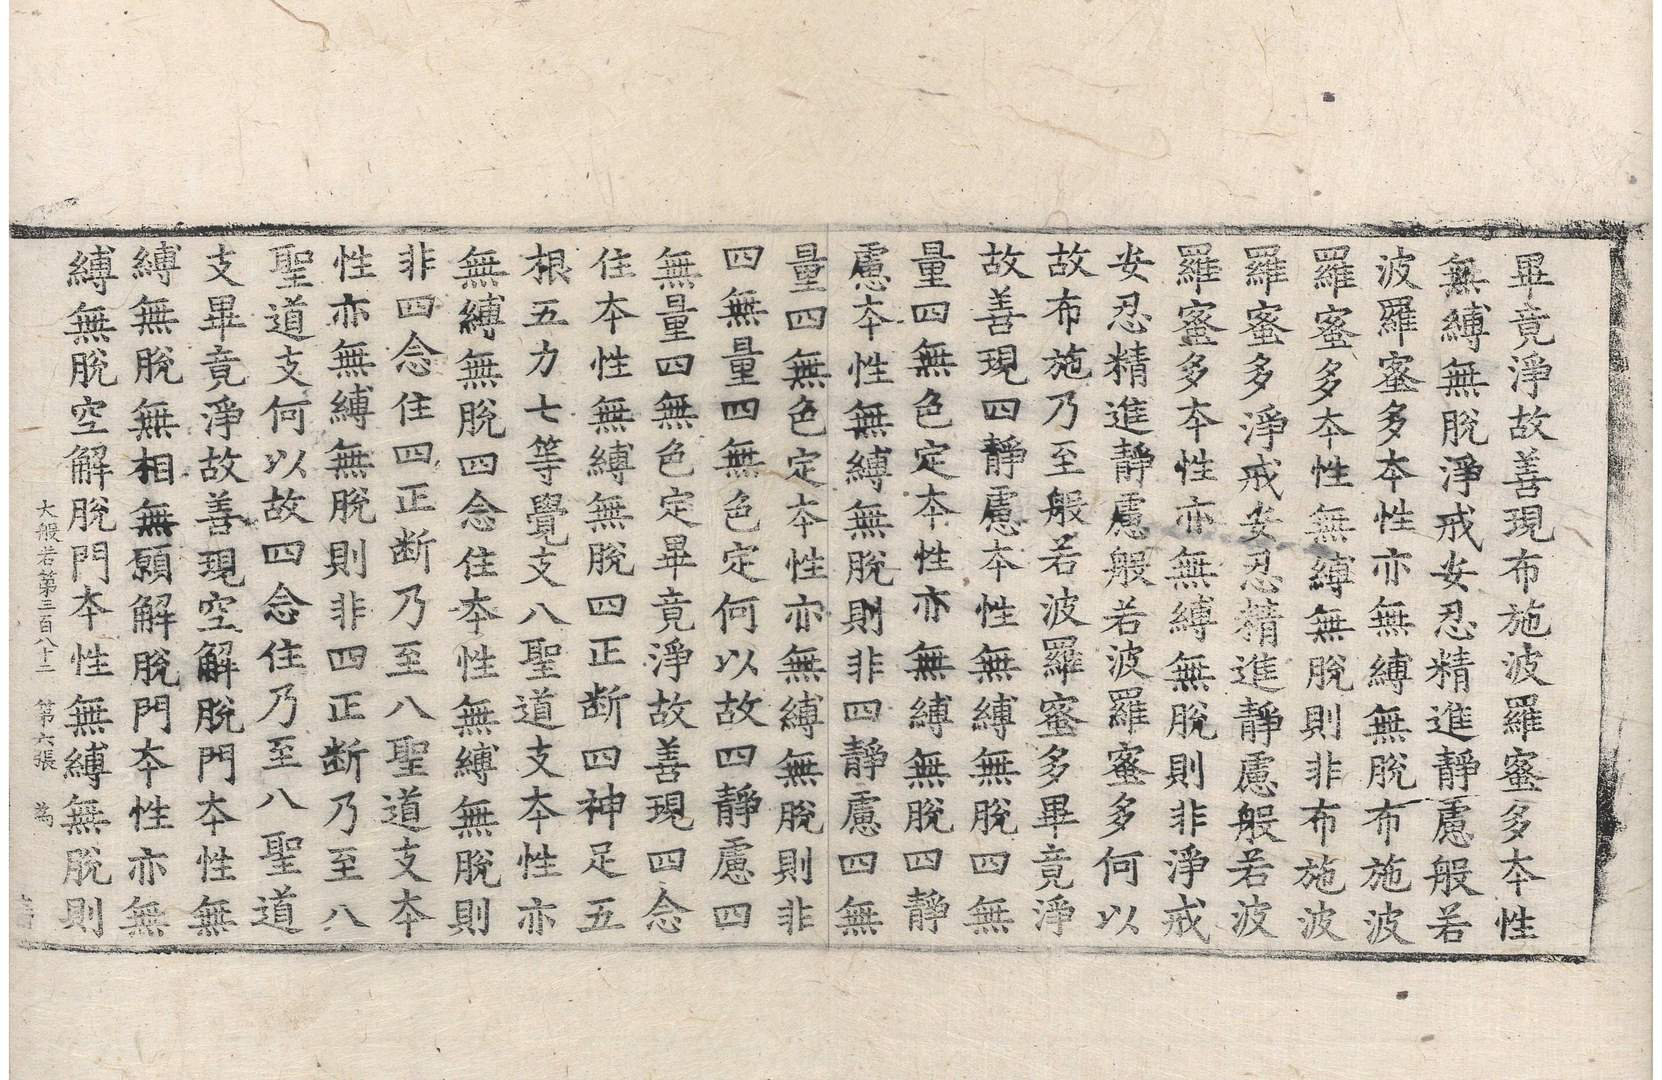 畢竟淨故善現布施波羅蜜多本性
無縛無脫淨戒安忍精進靜慮般若
波羅蜜多本性亦無縛無脫布施波
羅蜜多本性無縛無脫則非布施波
羅蜜多淨戒安忍精進靜慮般若波
羅蜜多本性亦無縛無脫則非淨戒
安忍精進靜慮般若波羅蜜多何以
故布施乃至般若波羅蜜多畢竟淨
故善現四靜慮本性無縛無脫四無
量四無色定本性亦無縛無脫四靜
慮本性無縛無脫則非四靜慮四無
量四無色定本性亦無縛無脫則非
四無量四無色定何以故四靜慮四
無量四無色定畢竟淨故善現四念
住本性無縛無脫四正断四神足五
根五力七等覺支八聖道支本性亦
無縛無脫四念住本性無縛無脫則
非四念住四正断乃至八聖道支本
性亦無縛無脫則非四正断乃至八
聖道支何以故四念住乃至八聖道
支畢竟淨故善現空解脫門本性無
縛無脫無相無願解脫門本性亦無
縛無脫空解脫門本性無縛無脫則
大般若第三百八十二 第六張 為